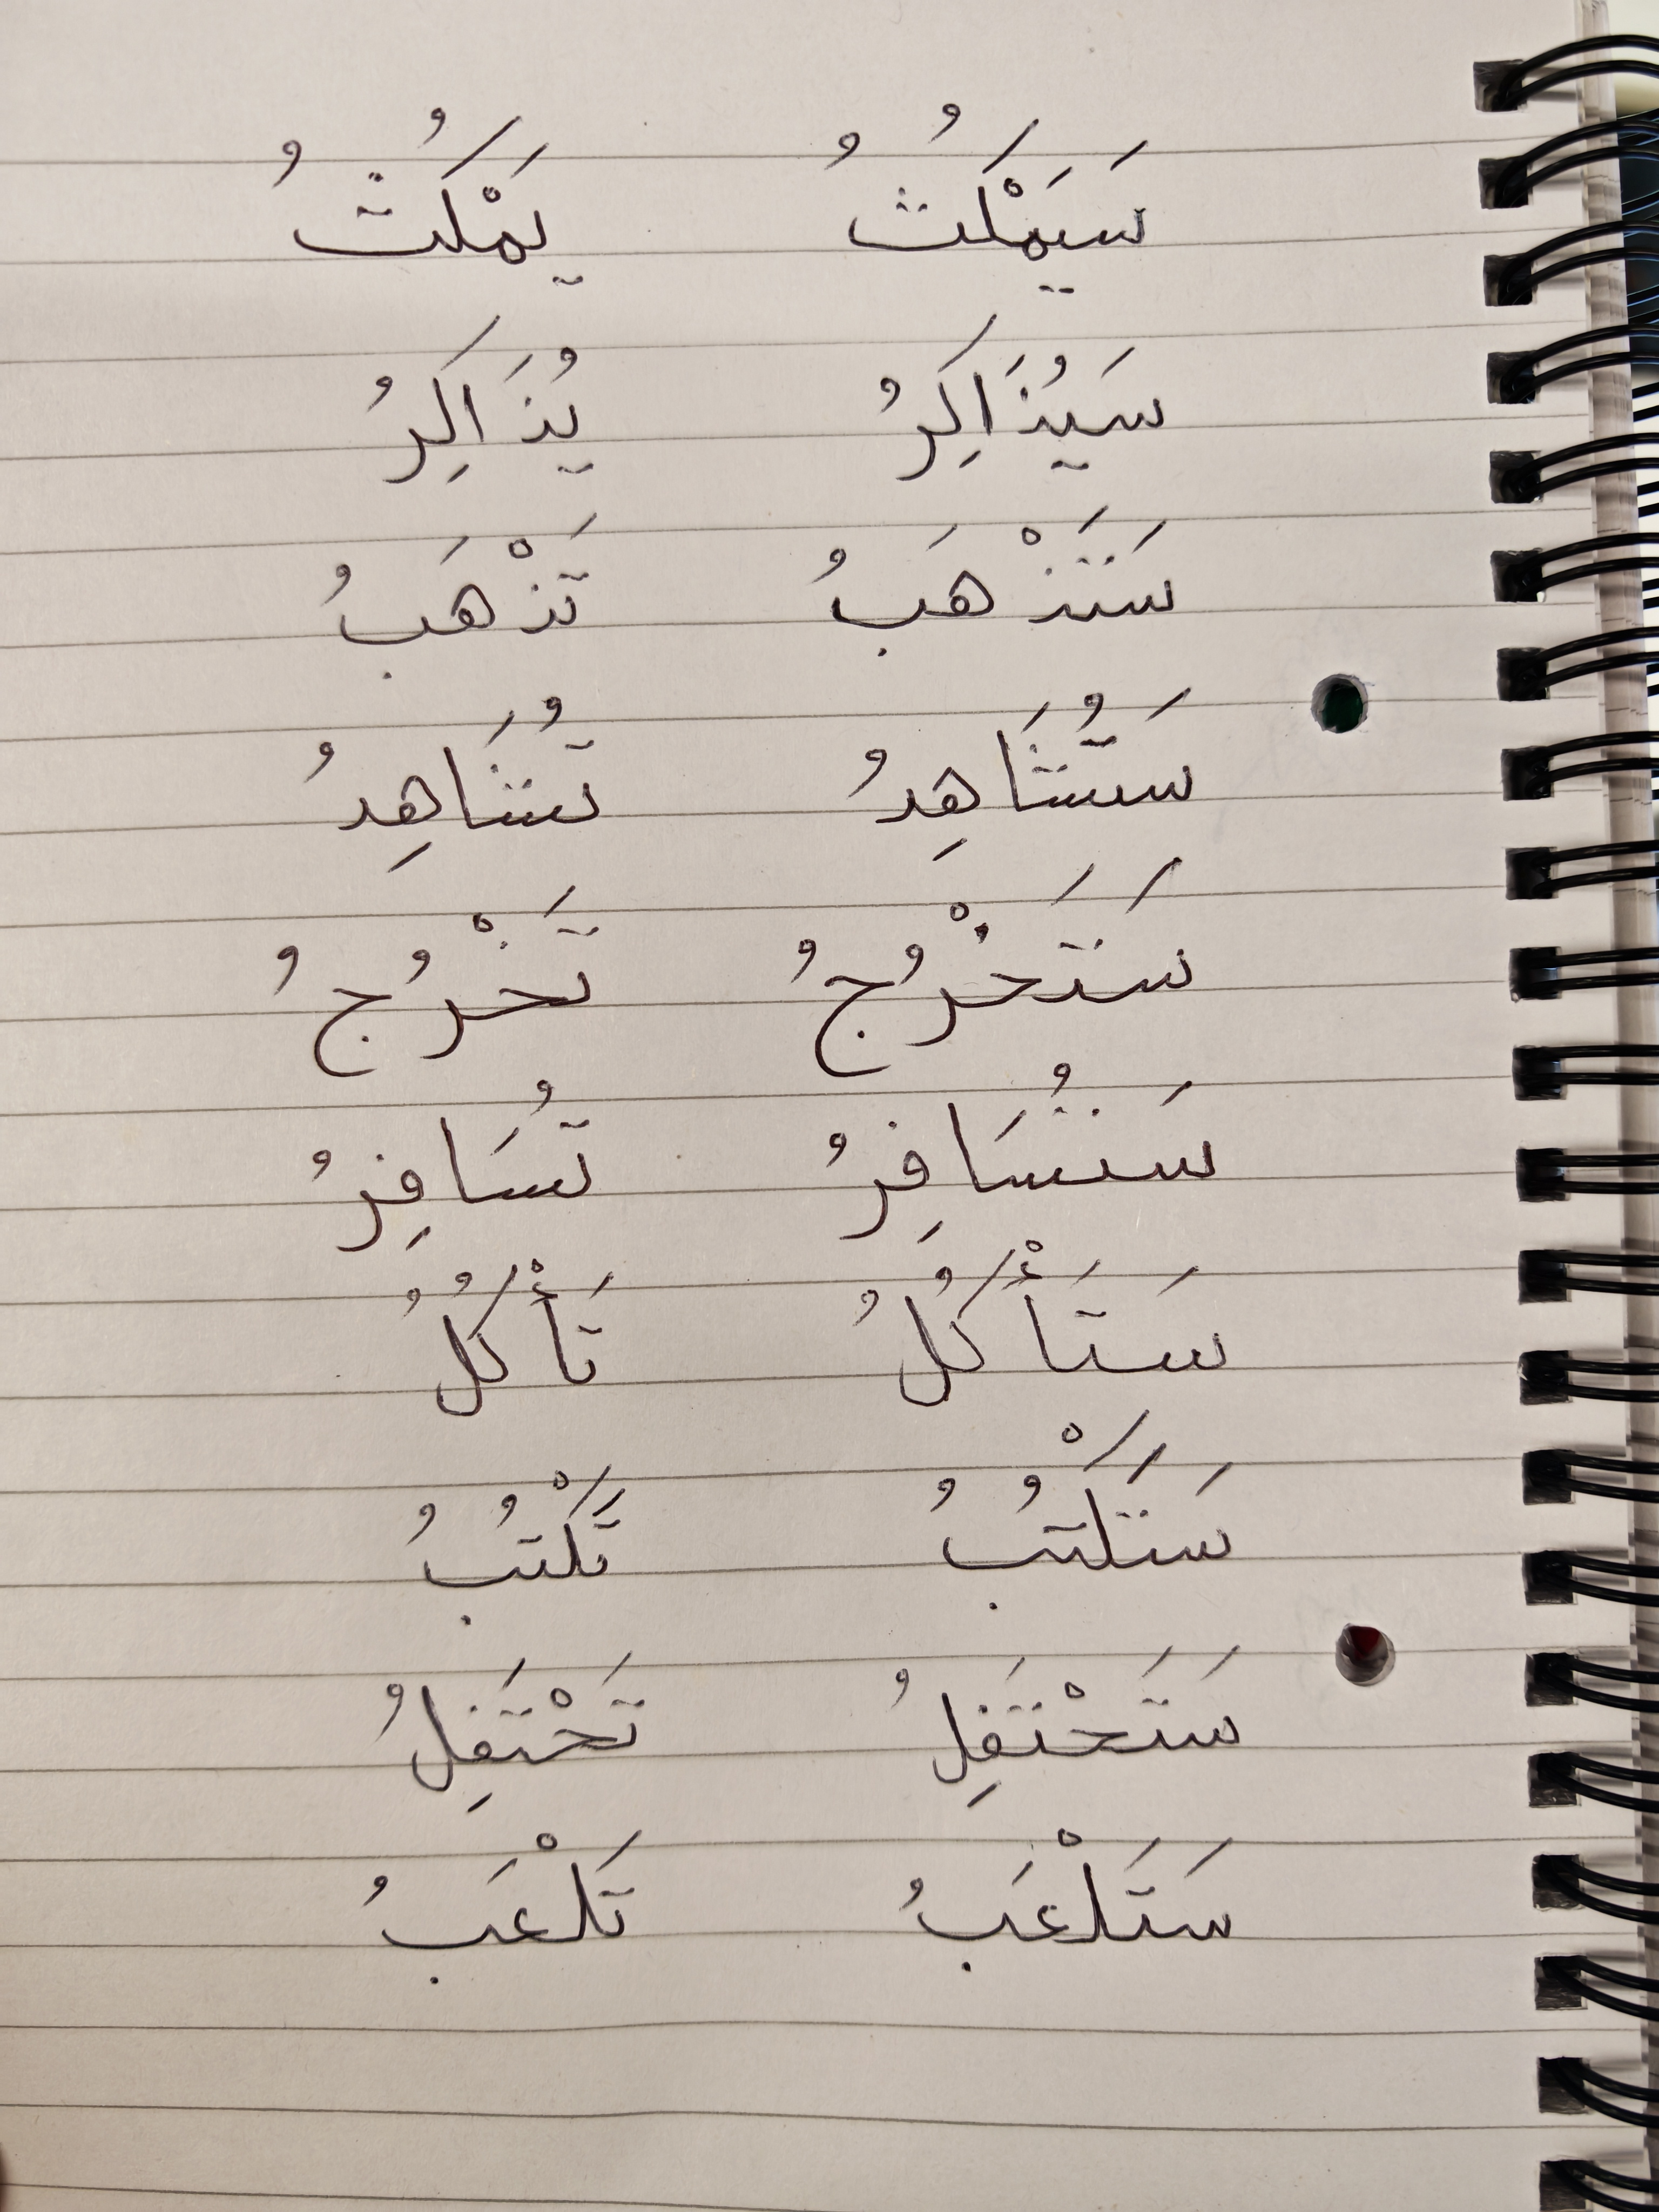 سَيَمْكُثُ يَمْكُثُ
سَيُذَاكِرُ يُذَاكِرُ
سَتَذْهَبُ تَذْهَبُ
سَتُشَاهِدُ تُشَاهِدُ
سَتَخْرُجُ تَخْرُجُ
سَتُسَافِرُ تُسَافِرُ
سَتَأْكُلُ تَأْكُلُ
سَتَكْتُبُ تَكْتُبُ
سَتَحْتَفِلُ تَحْتَفِلُ
سَتَلْعَبُ تَلْعَبُ